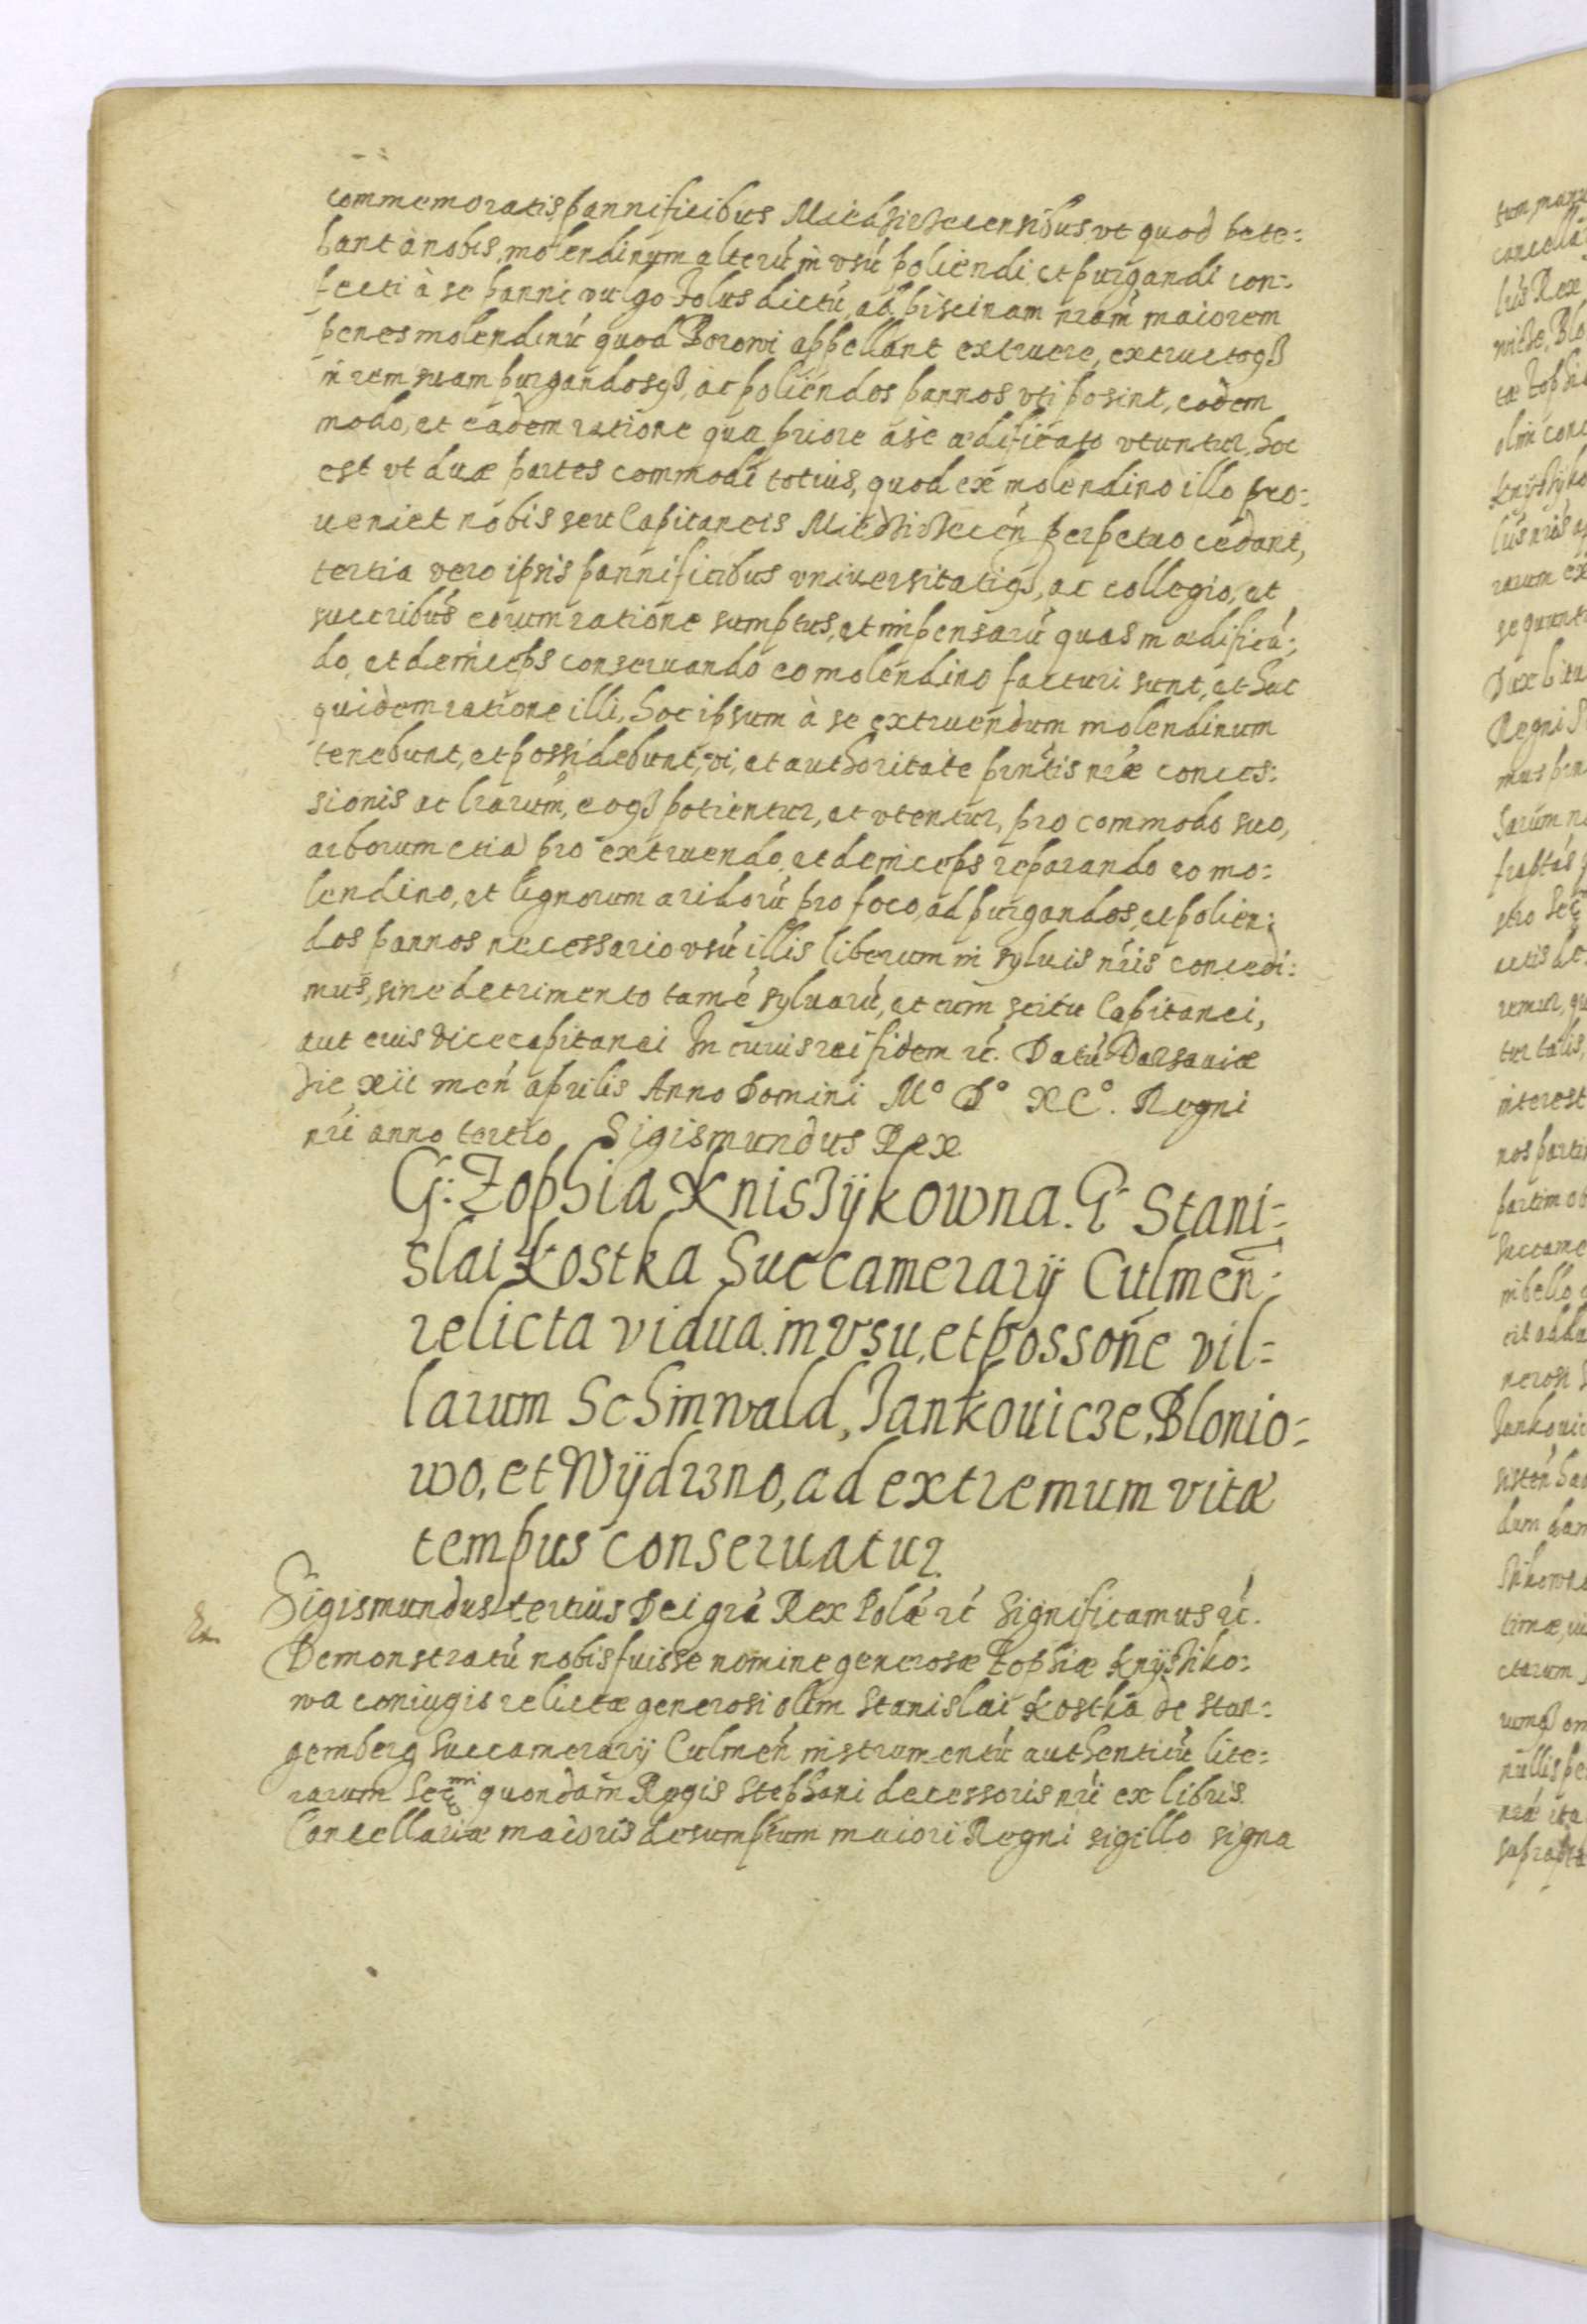 commemoratis pannificibus Miedzirzecensibus, vt quod pete:
bant à nobis, molendinum alterú in vsú poliendi, et purgandi con:
fecti à se panni vulgo Folus dictú, ad piscinam nrám maiorem
penes molendinú quod Borowi appellant extruere, extructoq3
in rem suam purgandosq3, ac poliendos pannos vti posint, eodem
modo, et eadem ratione qua priore à se ædificato vtuntur, hoc
est vt duæ partes commodi totius, quod ex molendino illo pro:
ueniet nobis seu Capitaneis Miedzirzecen̄ perpetuo cedant,
tertia vero ipsis pannificibus vniuersitatiq3, ac collegio, et
succribus eorum ratione sumptus, et impensarú quas in ædificá:
do, et deinceps conseruando eo molendino facturi sunt, et hac
quidem ratione illi, hoc ipsum à se extruendum molendinum
tenebunt, et possidebunt, vi, et authoritate pr̄ntis nr̄æ conces:
sionis ac lr̄arum, eoq3 potientur, et vtentur, pro commodo suo,
arborum etiā pro extruendo, et deinceps reparando eo mo:
lendino, et lignorum aridorú pro foco, ad purgandos, et polien:
dos pannos necessario vsú illis liberum in syluis nr̄is concedi:
mus, sine detrimento tamé syluarú, et cum scitu Capitanei,
aut eius Vicecapitanei In cuius rei fidem rć. Datú Varsauiæ
die xii men̄ aprilis Anno Domini M° D° XC°. Regni
nr̄i anno tertio Sigismundus Rex
G: Zophia Knis3ÿkowna. G Stani:
slai Kostka Succamerarÿ Culmen̄:
relicta vidua, in vsu, et posson̄e vil:
larum Schinwald, Jankouic3e, Blonio:
wo, et Wÿdr3no, ad extremum vitæ
tempus conseruatur.
Sigismundus tertius Dei grá Rex Polæ rć Significamus rć.
Demonstratú nobis fuisse nomine generosæ Zophiæ Knÿzhiko:
wa coniugis relictæ generosi olim Stanislai Kostka de Stan:
gemberg Succamerarÿ Culmen̄ instrumentú authenticú lite:
rarum Ser^mi quondam Regis Stephani decessoris nr̄i ex libris
Cancellariæ maioris desumptum maiori Regni sigillo signa